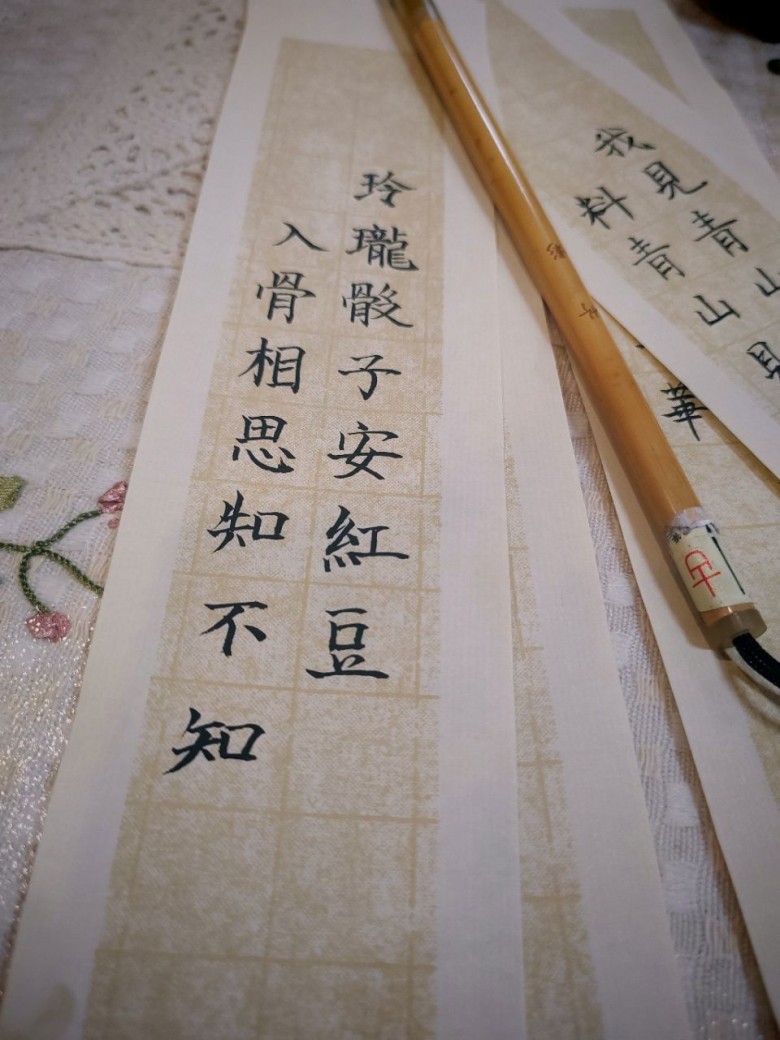 玲瓏骰子安紅豆
入骨相思知不知
我見青山見
料青山
華